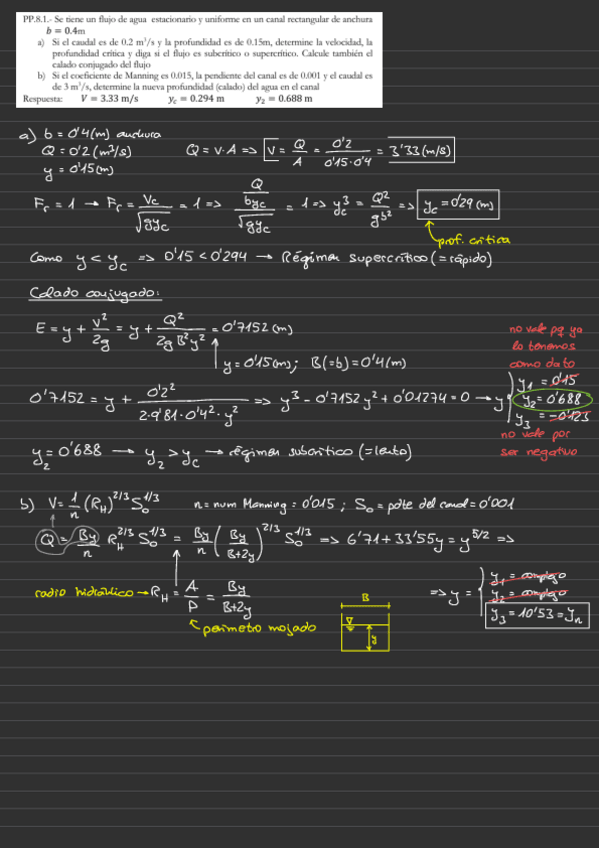 PP.8.1.- Se tiene un flujo de agua estacionario y uniforme en un canal rectangular de anchura
b = 0.4m
a) Si el caudal es de 0.2 m³/s y la profundidad es de 0.15m, determine la velocidad, la
profundidad crítica y diga si el flujo es subcrítico o supercrítico. Calcule también el
calado conjugado del flujo
b) Si el coeficiente de Manning es 0.015, la pendiente del canal es de 0.001 y el caudal es
de 3 m³/s, determine la nueva profundidad (calado) del agua en el canal
Respuesta: V = 3.33 m/s y_c = 0.294 m y₂ = 0.688 m
a) b = 0'4 (m) anchura
Q = 0'2 (m³/s) Q = v·A => V = Q/A = 0'2/(0'15·0'4) = 3'33 (m/s)
y = 0'15 (m)
Fr = 1 → Fr = Vc/√(gyc) = 1 => (Q/(byc))/√(gyc) = 1 => yc³ = Q²/(gb²) => yc = 0'29 (m)
prof. crítica
Como y < yc => 0'15 < 0'294 → Régimen supercrítico (= rápido)
Calado conjugado:
E = y + V²/2g = y + Q²/(2g B² y²) = 0'7152 (m)
y = 0'15 (m); B (=b) = 0'4 (m)
no vale pq ya
lo tenemos
como dato
0'7152 = y + 0'2²/(2·9'81·0'4²·y²) => y³ - 0'7152 y² + 0'01274 = 0 → y
y₁ = 0'15
y₂ = 0'688
y₃ = -0'123
no vale por
ser negativo
y₂ = 0'688 → y₂ > yc → régimen subcrítico (= lento)
b) V = 1/n (R_H)^2/3 S₀^1/3 n = num Manning = 0'015 ; S₀ = pdte del canal = 0'001
Q = By/n R_H^2/3 S₀^1/3 = By/n (By/(B+2y))^2/3 S₀^1/3 => 6'71 + 33'55y = y^5/2 =>
radio hidráulico → R_H = A/P = By/(B+2y)
perímetro mojado
B
y
=> y =
y₁ = complejo
y₂ = complejo
y₃ = 10'53 = yn